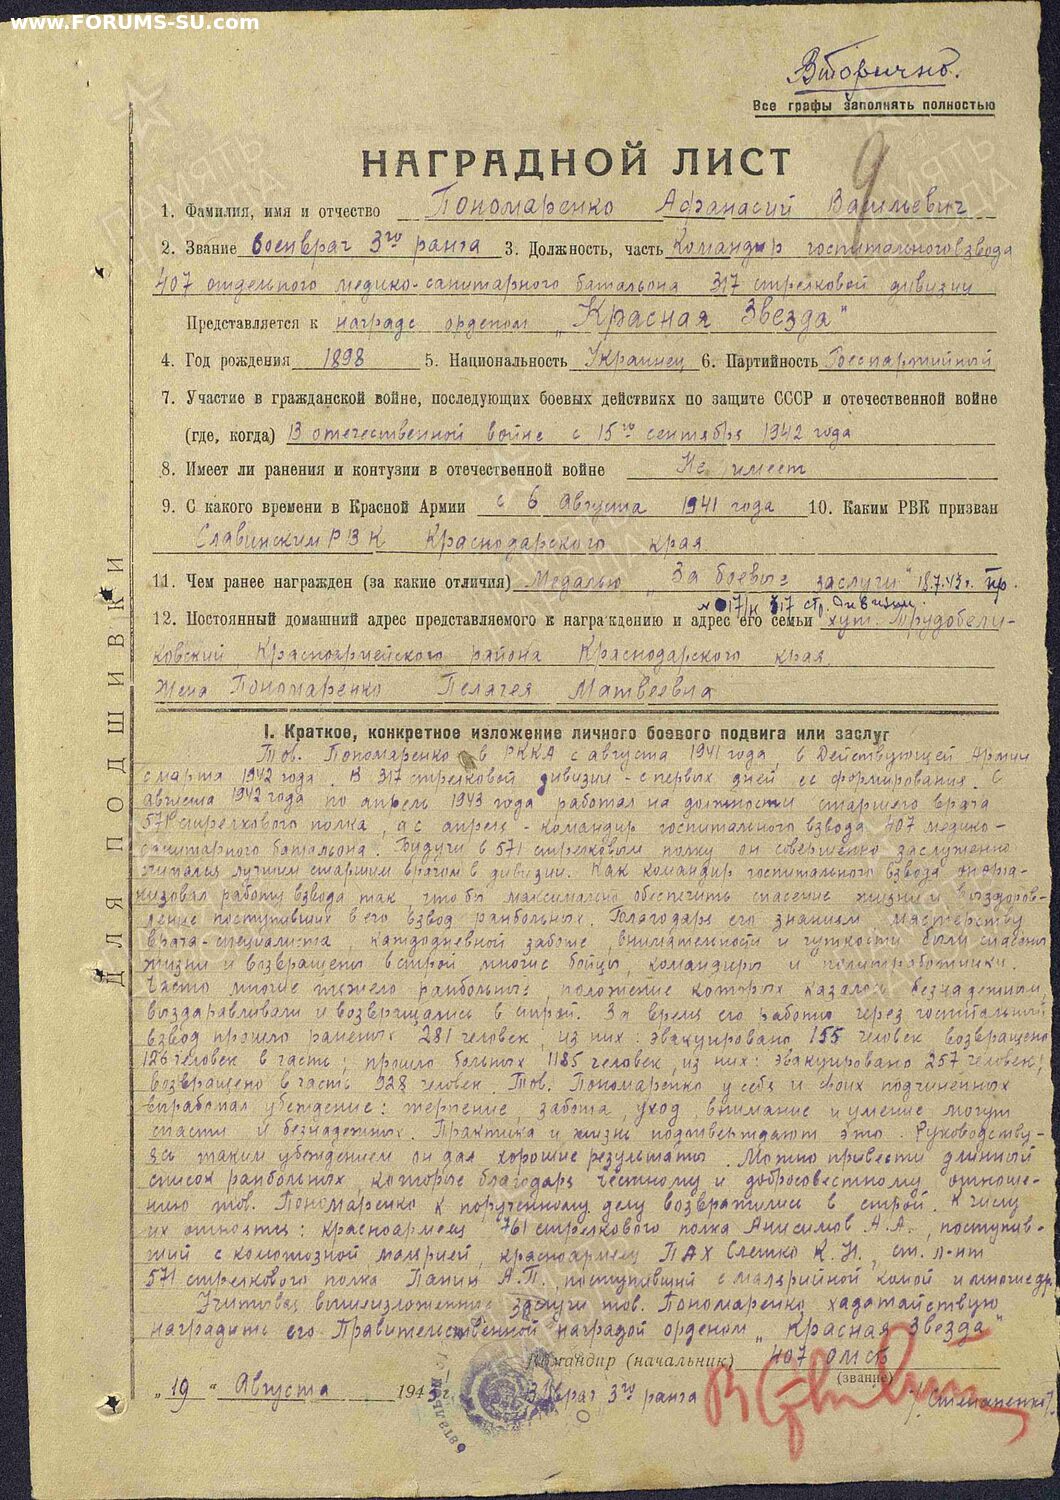 www.FORUMS-SU.com
Вторично.
Все графы заполнять полностью
9
НАГРАДНОЙ ЛИСТ
1. Фамилия, имя и отчество Пономаренко Афанасий Васильевич
2. Звание Военврач 3го ранга 3. Должность, часть Командир госпитального взвода
407 отдельного медико-санитарного батальона 317 стрелковой дивизии
Представляется к награде орденом „Красная Звезда"
4. Год рождения 1898 5. Национальность Украинец 6. Партийность Беспартийный
7. Участие в гражданской войне, последующих боевых действиях по защите СССР и отечественной войне
(где, когда) В отечественной войне с 15го сентября 1942 года
8. Имеет ли ранения и контузии в отечественной войне Не имеет
9. С какого времени в Красной Армии с 6 Августа 1941 года 10. Каким РВК призван
Славинским РВК Краснодарского края
11. Чем ранее награжден (за какие отличия) Медалью „За боевые заслуги" 18.7.43г. пр.
№ 017/н 317 стр. дивизии.
12. Постоянный домашний адрес представляемого к награждению и адрес его семьи хут. Трудобели-
ковский, Красноармейского района Краснодарского края
Жена Пономаренко Пелагея Матвеевна
ДЛЯ ПОДШИВКИ
I. Краткое, конкретное изложение личного боевого подвига или заслуг
Тов. Пономаренко в РККА с августа 1941 года, в Действующей Армии
с марта 1942 года. В 317 стрелковой дивизии - с первых дней ее формирования. С
Августа 1942 года по апрель 1943 года работал на должности старшего врача
571 стрелкового полка, а с апреля - командир госпитального взвода 407 медико-
санитарного батальона. Будучи в 571 стрелковым полку он совершенно заслуженно
считался лучшим старшим врачом в дивизии. Как командир госпитального взвода он орга-
низовал работу взвода так, чтобы максимально обеспечить спасение жизни и выздоров-
ление поступивших в его взвод ранбольных. Благодаря его знаниям мастерству
врача-специалиста, каждодневной заботе, внимательности и чуткости были спасены
жизни и возвращены в строй многие бойцы, командиры и политработники.
Часто многие тяжело ранбольные, положение которых казалось безнадежным,
выздаравливали и возвращались в строй. За время его работы через госпитальный
взвод прошло раненых 281 человек, из них: эвакуировано 155 человек возвращено
126 человек в часть; прошло больных 1185 человек, из них: эвакуировано 257 человек,
возвращено в часть 928 человек. Тов. Пономаренко у себя и своих подчиненных
выработал убеждение: терпение, забота, уход, внимание и умение могут
спасти и безнадежных. Практика и жизнь подтверждают это. Руководству-
ясь таким убеждением он дал хорошие результаты. Можно привести длинный
список ранбольных, которые благодаря честному и добросовестному отноше-
нию тов. Пономаренко к порученному делу возвратились в строй. К числу
их относятся: красноармеец 761 стрелкового полка Анисимов А.А., поступив-
ший с коматозной малярией, красноармеец ПАХ Слешко К.И., ст. л-нт
571 стрелкового полка Панин А.П., поступивший с малярийной комой и многие др.
Учитывая вышеизложенные заслуги тов. Пономаренко, хадатайствую
наградить его Правительственной наградой орденом „Красная Звезда"
Командир (начальник) 407 омсб
(звание)
„19" Августа 1943 г. В/врач 3го ранга /Степаненко/.